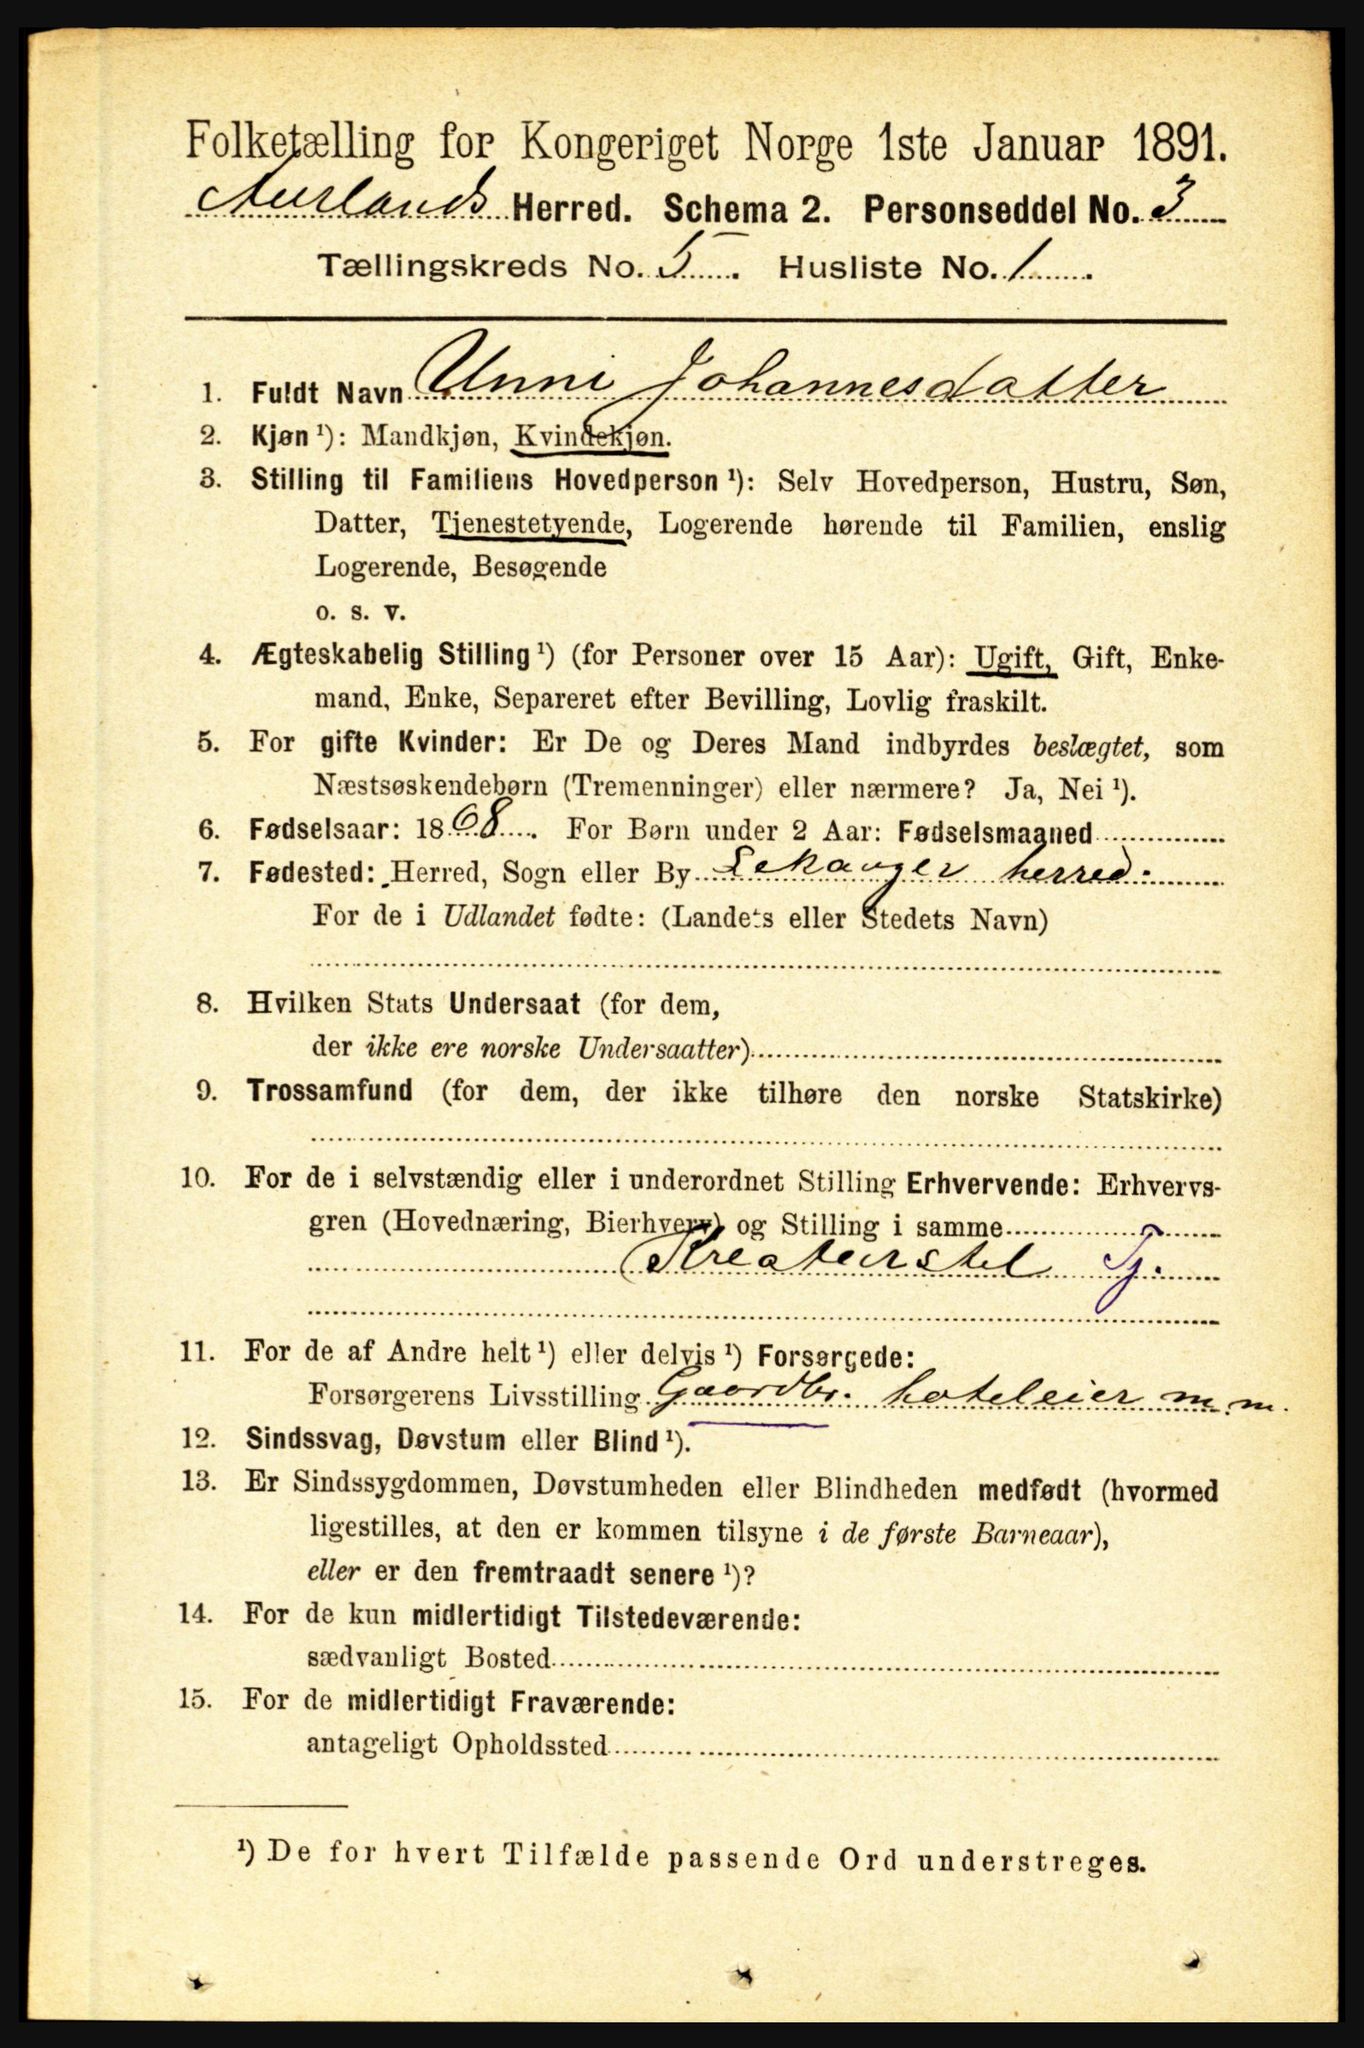 Folketælling for Kongeriget Norge 1ste Januar 1891.
Aurlands Herred. Schema 2. Personseddel No. 3
Tællingskreds No. 5. Husliste No. 1.
1. Fuldt Navn Unni Johannesdatter
2. Kjøn ¹): Mandkjøn, Kvindekjøn.
3. Stilling til Familiens Hovedperson ¹): Selv Hovedperson, Hustru, Søn,
Datter, Tjenestetyende, Logerende hørende til Familien, enslig
Logerende, Besøgende
o. s. v.
4. Ægteskabelig Stilling ¹) (for Personer over 15 Aar): Ugift, Gift, Enke-
mand, Enke, Separeret efter Bevilling, Lovlig fraskilt.
5. For gifte Kvinder: Er De og Deres Mand indbyrdes beslægtet, som
Næstsøskendebørn (Tremenninger) eller nærmere? Ja, Nei ¹).
6. Fødselsaar: 1868. For Børn under 2 Aar: Fødselsmaaned
7. Fødested: Herred, Sogn eller By Lekanger herred.
For de i Udlandet fødte: (Landets eller Stedets Navn)
8. Hvilken Stats Undersaat (for dem,
der ikke ere norske Undersaatter)
9. Trossamfund (for dem, der ikke tilhøre den norske Statskirke)
10. For de i selvstændig eller i underordnet Stilling Erhvervende: Erhvervs-
gren (Hovednæring, Bierhverv) og Stilling i samme
Kreaturstel Tj.
11. For de af Andre helt ¹) eller delvis ¹) Forsørgede:
Forsørgerens Livsstilling Gaardbr. hoteleier m. m.
12. Sindssvag, Døvstum eller Blind ¹).
13. Er Sindssygdommen, Døvstumheden eller Blindheden medfødt (hvormed
ligestilles, at den er kommen tilsyne i de første Barneaar),
eller er den fremtraadt senere ¹)?
14. For de kun midlertidigt Tilstedeværende:
sædvanligt Bosted
15. For de midlertidigt Fraværende:
antageligt Opholdssted
¹) De for hvert Tilfælde passende Ord understreges.